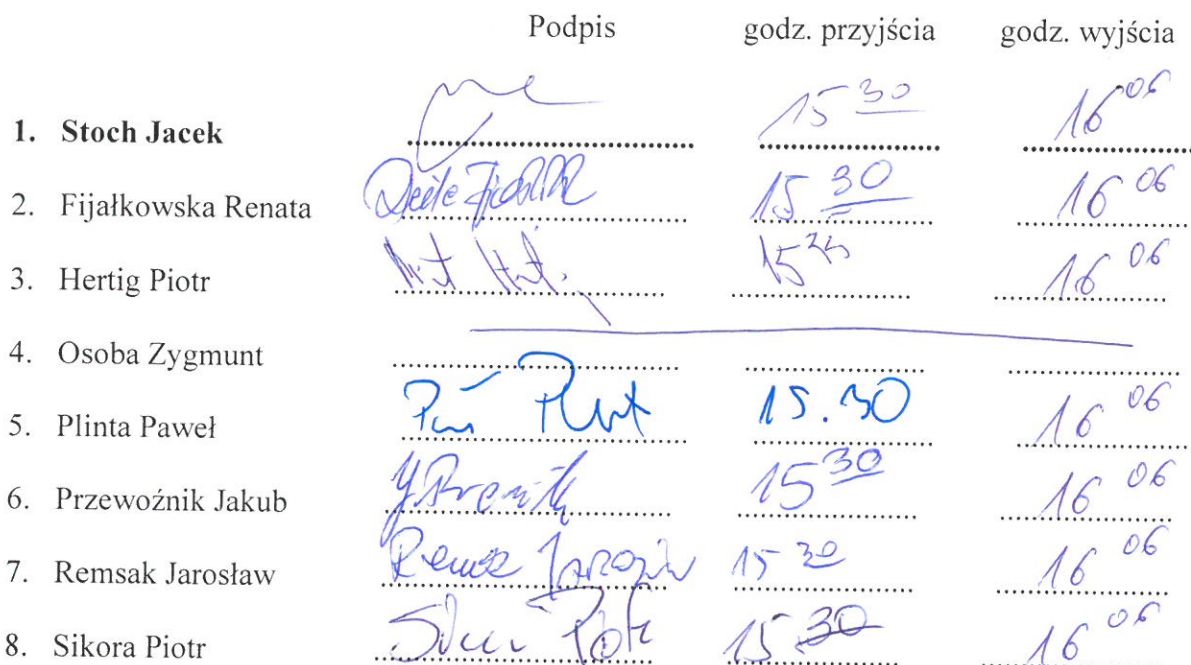 Podpis godz. przyjścia godz. wyjścia
1. Stoch Jacek 15 30 16 06
2. Fijałkowska Renata 15 30 16 06
3. Hertig Piotr 16 06
4. Osoba Zygmunt
5. Plinta Paweł 15.30 16 06
6. Przewoźnik Jakub 15 30 16 06
7. Remsak Jarosław 15 30 16 06
8. Sikora Piotr 15 30 16 06